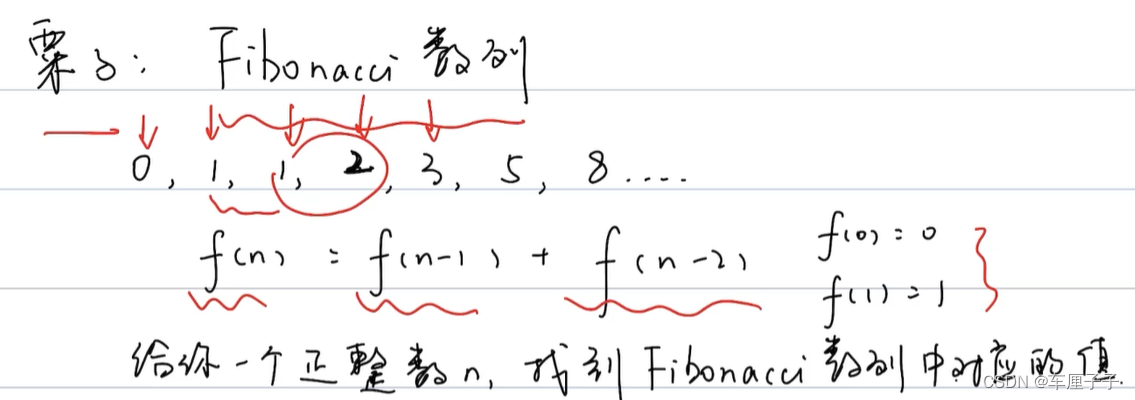 栗子: Fibonacci 数列
0, 1, 1, 2, 3, 5, 8 ....
f(n) = f(n-1) + f(n-2)
f(0) = 0
f(1) = 1
给你一个正整数n, 找到Fibonacci数列中对应的值.
CSDN @车厘子子